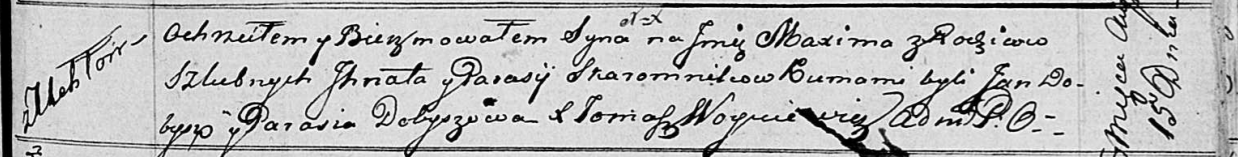 N=X
Ochrzciłem y Bierzmowałem Syna na Jmię Maxima z Rodzicow
Szlubnych Jhnata y Parasij Skaromnikow Kumami byli Jan Do-
bysz y Parasia Dobyszowa X Tomasz Woyniewicz Adm P. O.
Miesca
15 Dnia